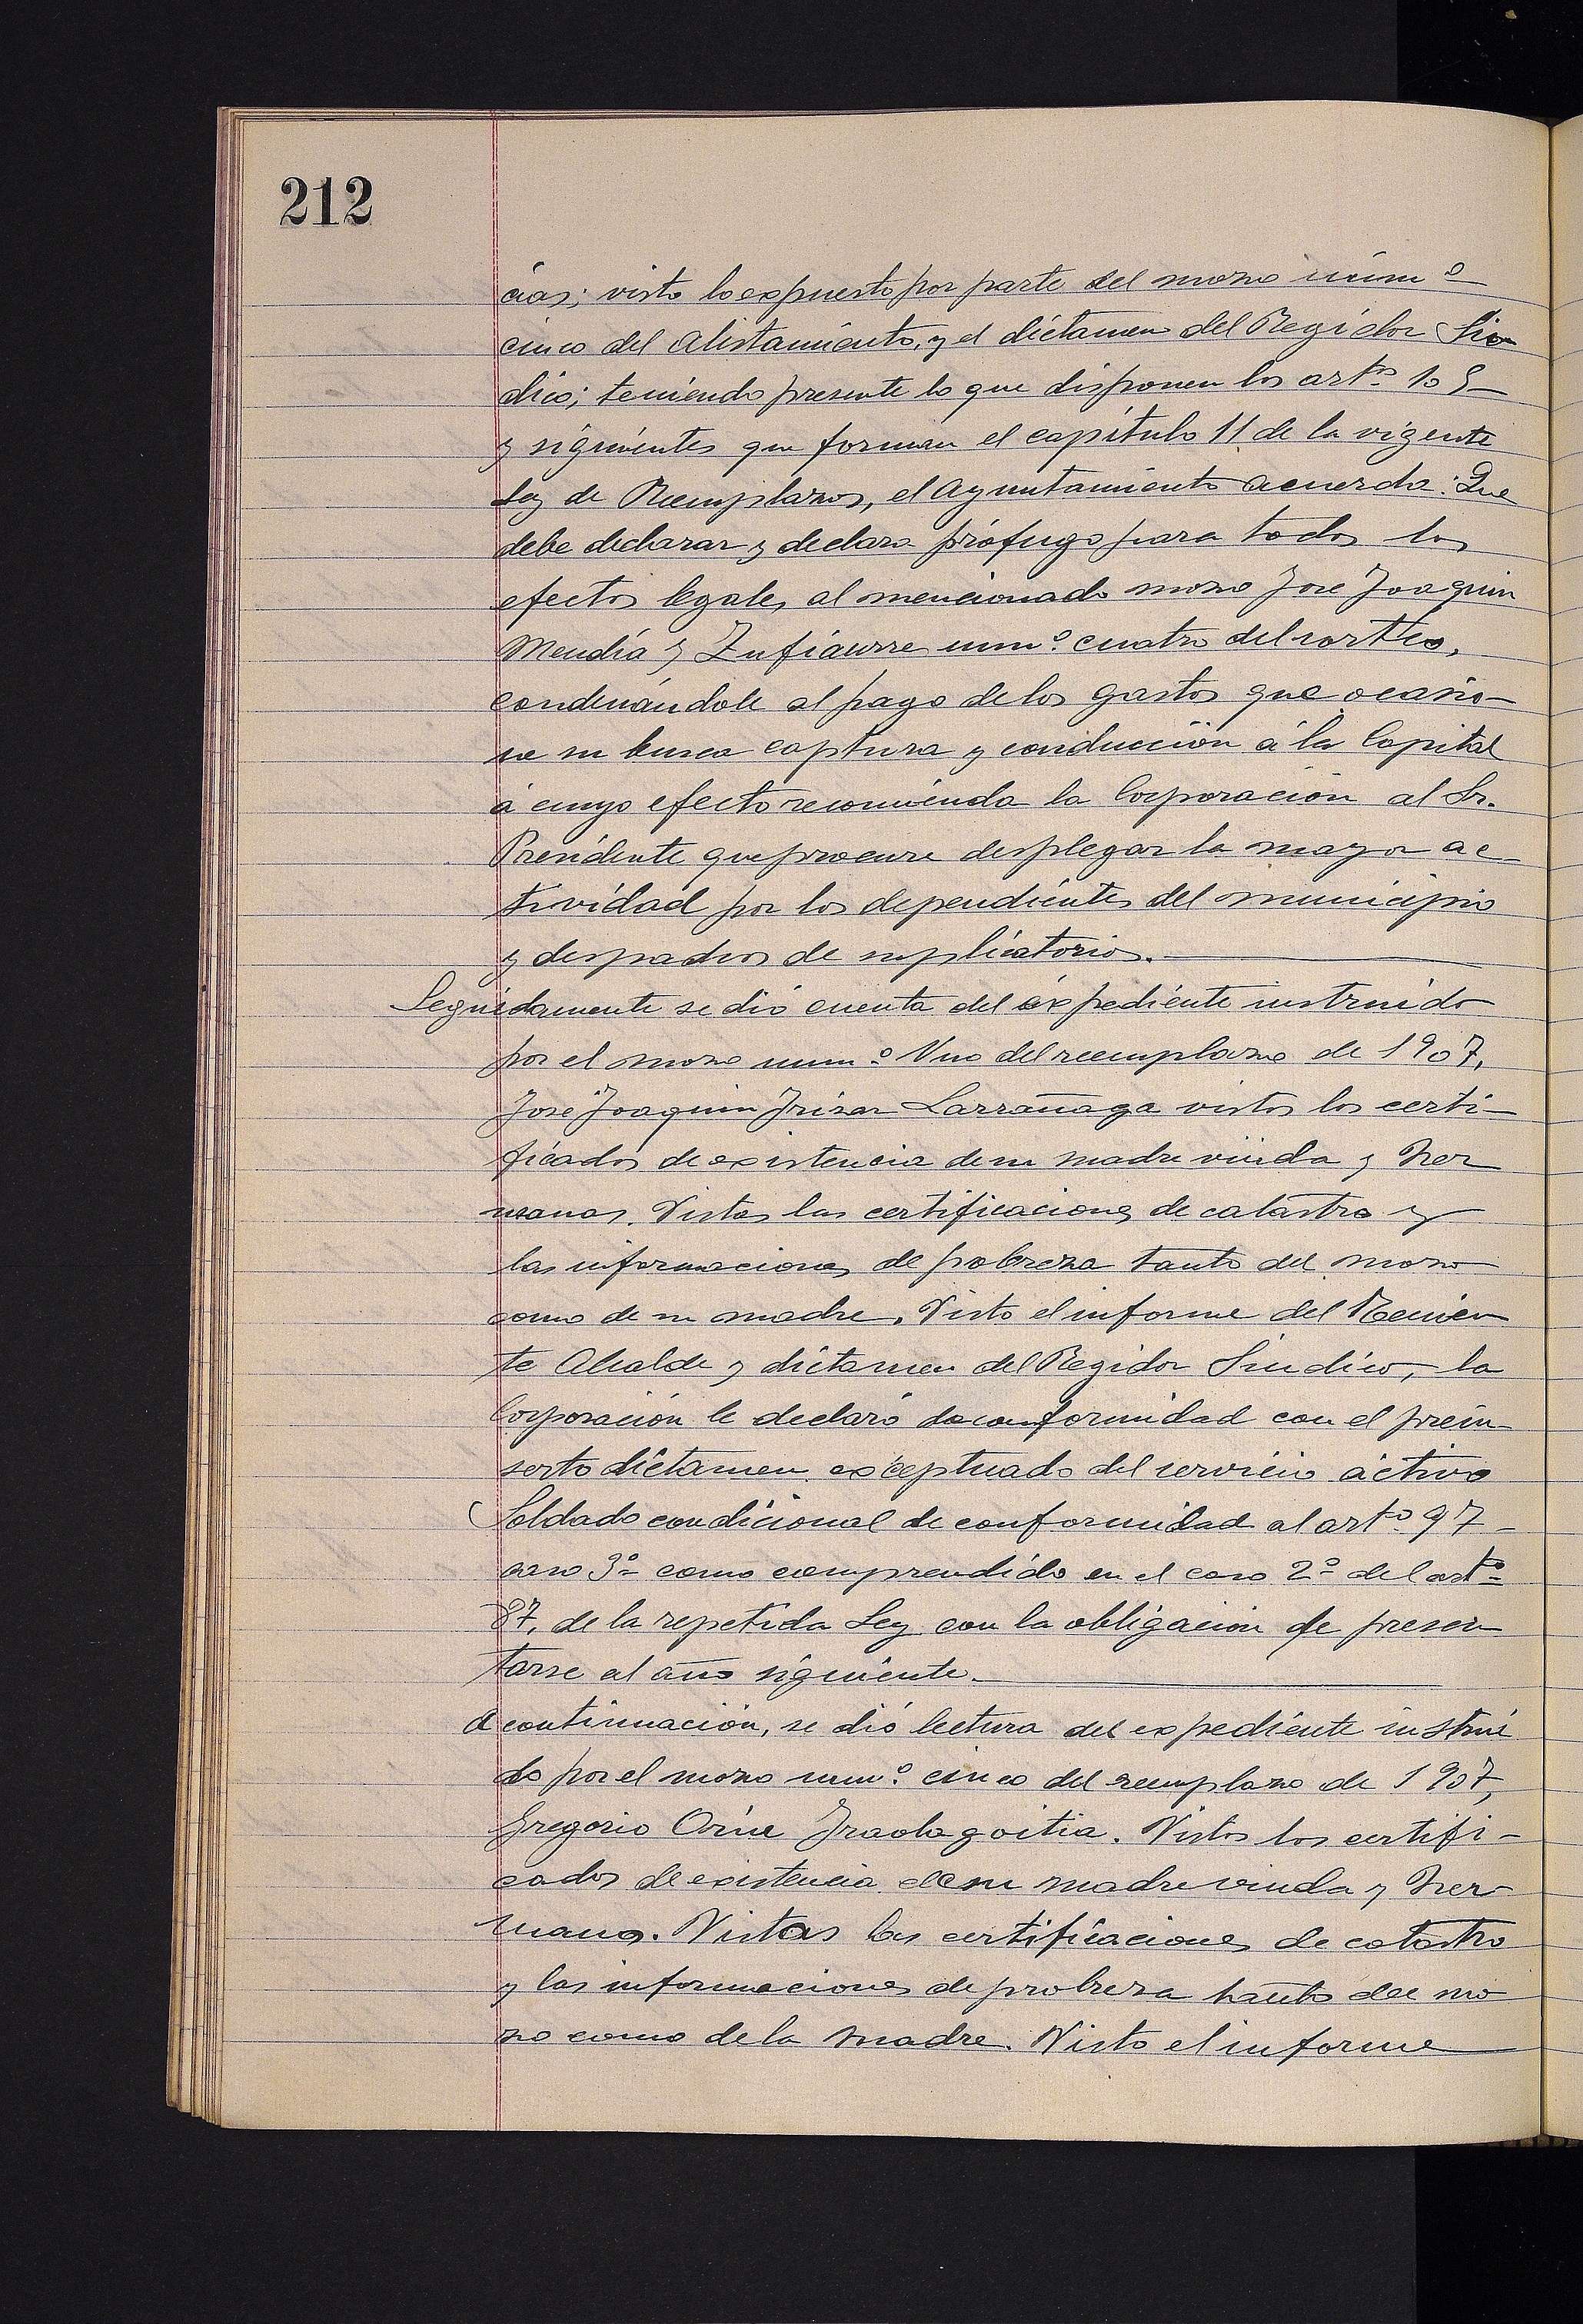 212
cias; visto lo expuesto por parte del mozo núm.º
cinco del Alistamiento, y el dictamen del Regidor Sin
dico; teniendo presente lo que disponen los artos. 105
y siguientes que forman el capítulo 11 de la vigente
Ley de Reemplazos, el Ayuntamiento acuerda: Que
debe declarar y declara prófugo para todos los
efectos legales, al mencionado mozo José Joaquin
Mendía y Zufiaurre num.º cuatro del sorteo,
condenándole al pago de los gastos que ocasio-
ne su busca captura y conducción á la Capital
á cuyo efecto recomienda la Corporación al Sr.
Presidente que procure desplegar la mayor ac-
tividad por los dependientes del municipio
y despachos de suplicatorios.
Seguidamente se dió cuenta del expediente instruido
por el mozo num.º Uno del reemplazo de 1907,
José Joaquin Irizar Larrañaga vistos los certi-
ficados de existencia de su madre viuda y her
manos. Vistas las certificaciones de catastro y
las informaciones de pobreza tanto del mozo
como de su madre. Visto el informe del Tenien
te Alcalde y dictamen del Regidor Síndico, la
Corporación le declaró de conformidad con el prein
serto dictamen exceptuado del servicio activo
Soldado condicional de conformidad al arto. 97
caso 3º como comprendido en el caso 2º del arto.
87, de la repetida Ley con la obligación de presen
tarse al año siguiente.
A continuación, se dió lectura del expediente instrui
do por el mozo num.º cinco del reemplazo de 1907,
Gregorio Oríue Iraolagoitia. Vistos los certifi-
cados de existencia de su madre viuda y her-
manos. Vistas las certificaciones de catastro
y las informaciones de probreza tanto del mo
zo como de la madre. Visto el informe